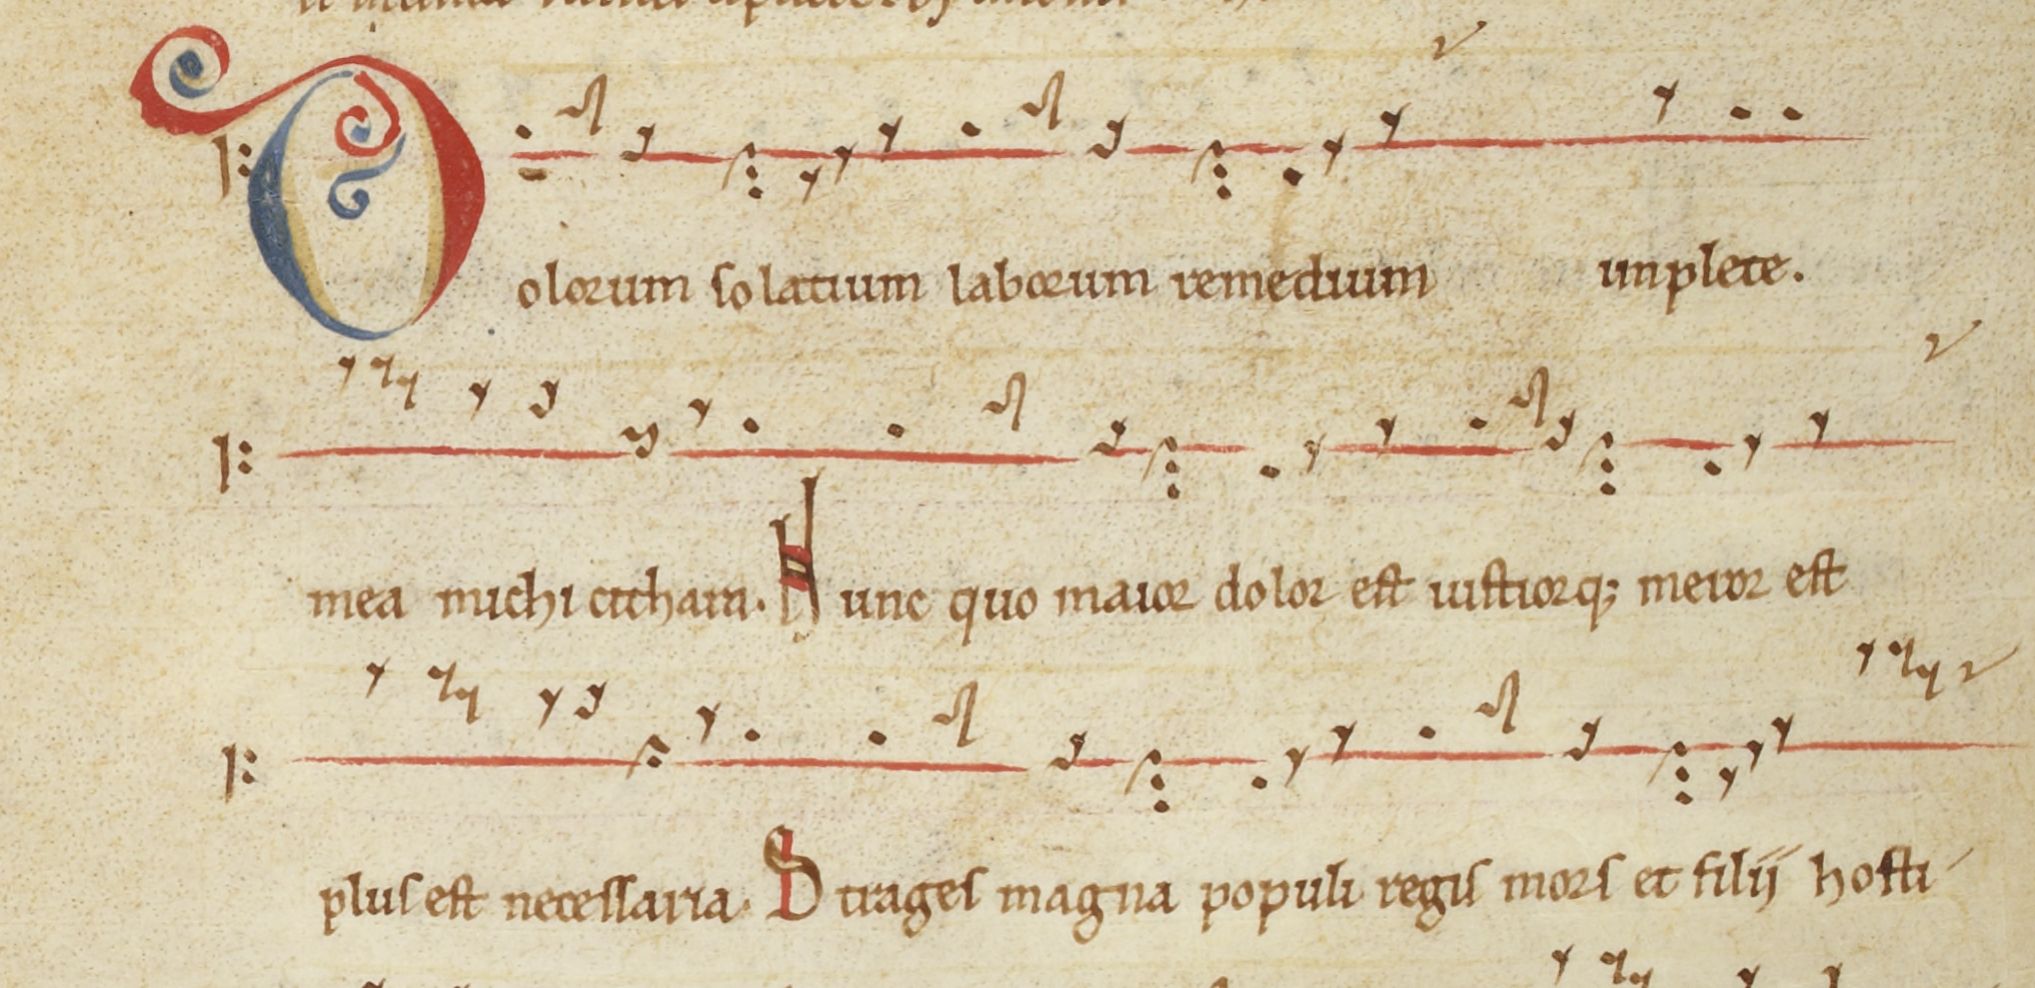 Dolorum solatium laborum remedium
mea michi cithara. Nunc quo maior dolor est iustiorq; meror est
plus est necessaria. Strages magna populi regis mors et filii hosti